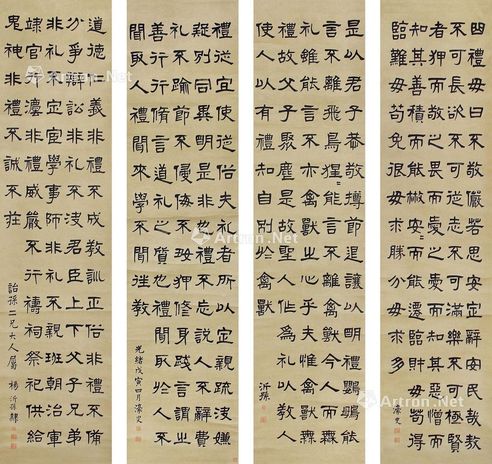 曲禮曰毋不敬儼若思安定辭安民哉敖
不可長欲不可從志不可滿樂不可極賢
者狎而敬之畏而愛之愛而知其惡憎而
知其善積而能散安安而能遷臨財毋苟得
臨難毋苟免很毋求勝分毋求多
濠叟
是以君子恭敬撙節退讓以明禮鸚鵡能
言不離飛鳥猩猩能言不離禽獸今人而無
禮雖能言不亦禽獸之心乎夫惟禽獸無
禮故父子聚麀是故聖人作為禮以教人
使人以有禮知自別於禽獸
沂孫
禮從宜使從俗夫禮者所以定親疏決嫌
疑別同異明是非也禮不妄說人不辭費
禮不踰節不侵侮不好狎修身踐言謂之
善行行修言道禮之質也禮聞取於人不
聞取人禮聞來學不聞往教
光緒戊寅四月濠叟
道德仁義非禮不成教訓正俗非禮不備
分爭辨訟非禮不決君臣上下父子兄弟
非禮不定宦學事師非禮不親班朝治軍
涖官行灋非禮威嚴不行禱祠祭祀供給
鬼神非禮不誠不莊
詒孫二兄大人屬 楊沂孫隸
Artron.Net
Artron.Net
Artron.Net
Artron.Net